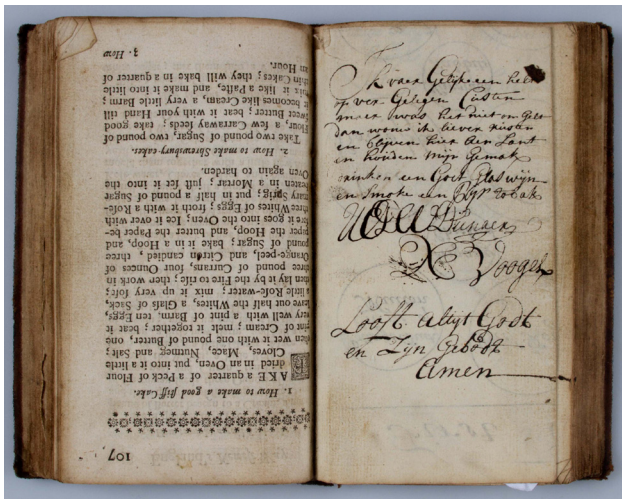 107
1. How to make a good stiff Cake.
TAKE a quarter of a Peck of Flour
dried in an Oven, put into it a little
Cloves, Mace, Nutmeg and Salt;
then wet it with one pound of Butter, one
pint of Cream; melt it together; beat it
very well with a pint of Barm, ten Eggs,
leave out half the Whites, a Glass of Sack,
little Rose-water; mix it up very soft;
then lay it by the Fire to rise; then work in
three pound of Currans, four Ounces of
Orange-peel, and Citron candied, three
pound of Sugar; bake it in a Hoop, and
paper the Hoop, and butter the Paper be-
fore it goes into the Oven: Ice it over with
three Whites of Eggs; froth it with a Rose-
mary sprig; put in half a pound of Sugar
beaten in a Mortar; just set it into the
Oven again to harden.
2. How to make Shrewsbury-cakes.
Take two pound of Sugar, two pound of
Flour, a few Carraway seeds; take good
sweet Butter; beat it with your Hand till
it becomes like Cream, a very little Barm;
it like a Paste, and make it into little
thin Cakes; they will bake in a quarter of
an Hour.
3. How
Ik vaer Gelijk een helt
op ver Gelegen Custen
maer was het niet om Gelt
dan wouw ik liever rusten
en blijven hier Aen Lant
en houden Mijn Gemak
drinken een Goet Glas wijn
en smoke een Pijp tobak
Voogel
Looft Altyt Godt
en Zijn Gebodt
Amen